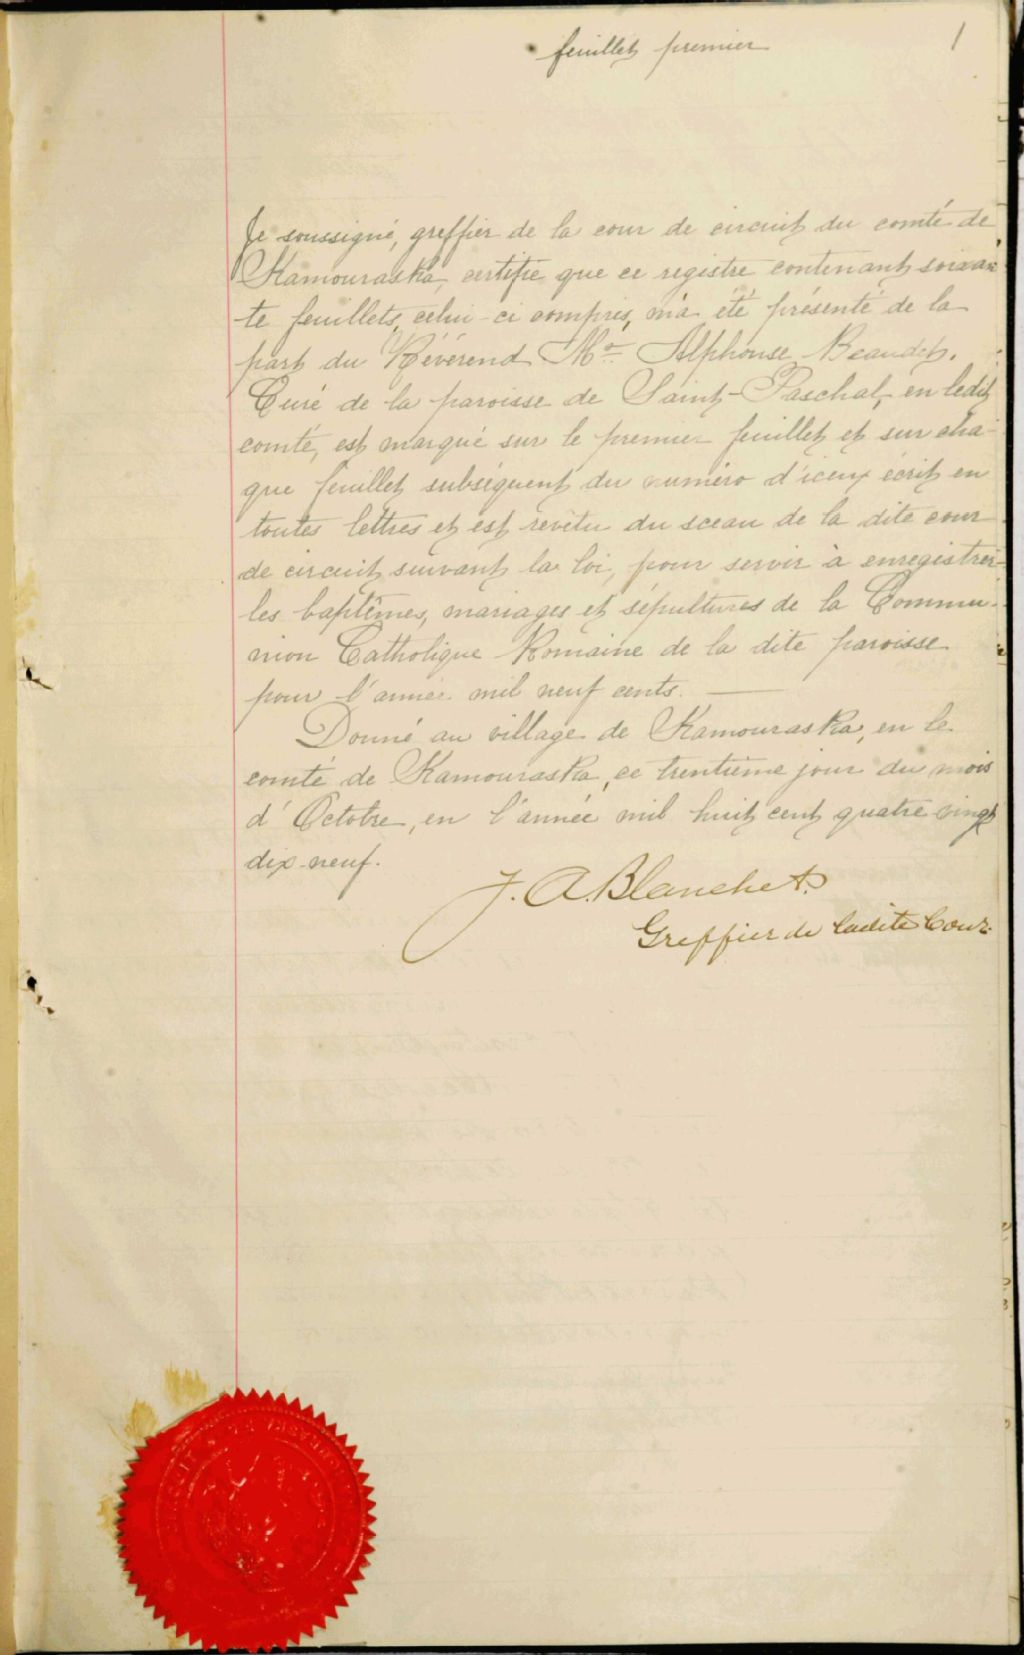 feuillet premier
1
Je soussigné, greffier de la cour de circuit du comté de
Kamouraska, certifie que ce registre contenant soixan-
te feuillets, celui-ci compris, m'a été présenté de la
part du Révérend Mr. Alphonse Beaudet,
Curé de la paroisse de Saint-Paschal, en ledit
comté, est marqué sur le premier feuillet et sur cha-
que feuillet subséquent du numéro d'iceux écrit en
toutes lettres et est revêtu du sceau de la dite cour
de circuit suivant la loi, pour servir à enregistrer
les baptêmes, mariages et sépultures de la Commu-
nion Catholique Romaine de la dite paroisse
pour l'année mil neuf cents.
Donné au village de Kamouraska, en le
comté de Kamouraska, ce trentième jour du mois
d'Octobre, en l'année mil huit cent quatre vingt
dix-neuf.
J. A. Blanchet.
Greffier de ladite Cour.